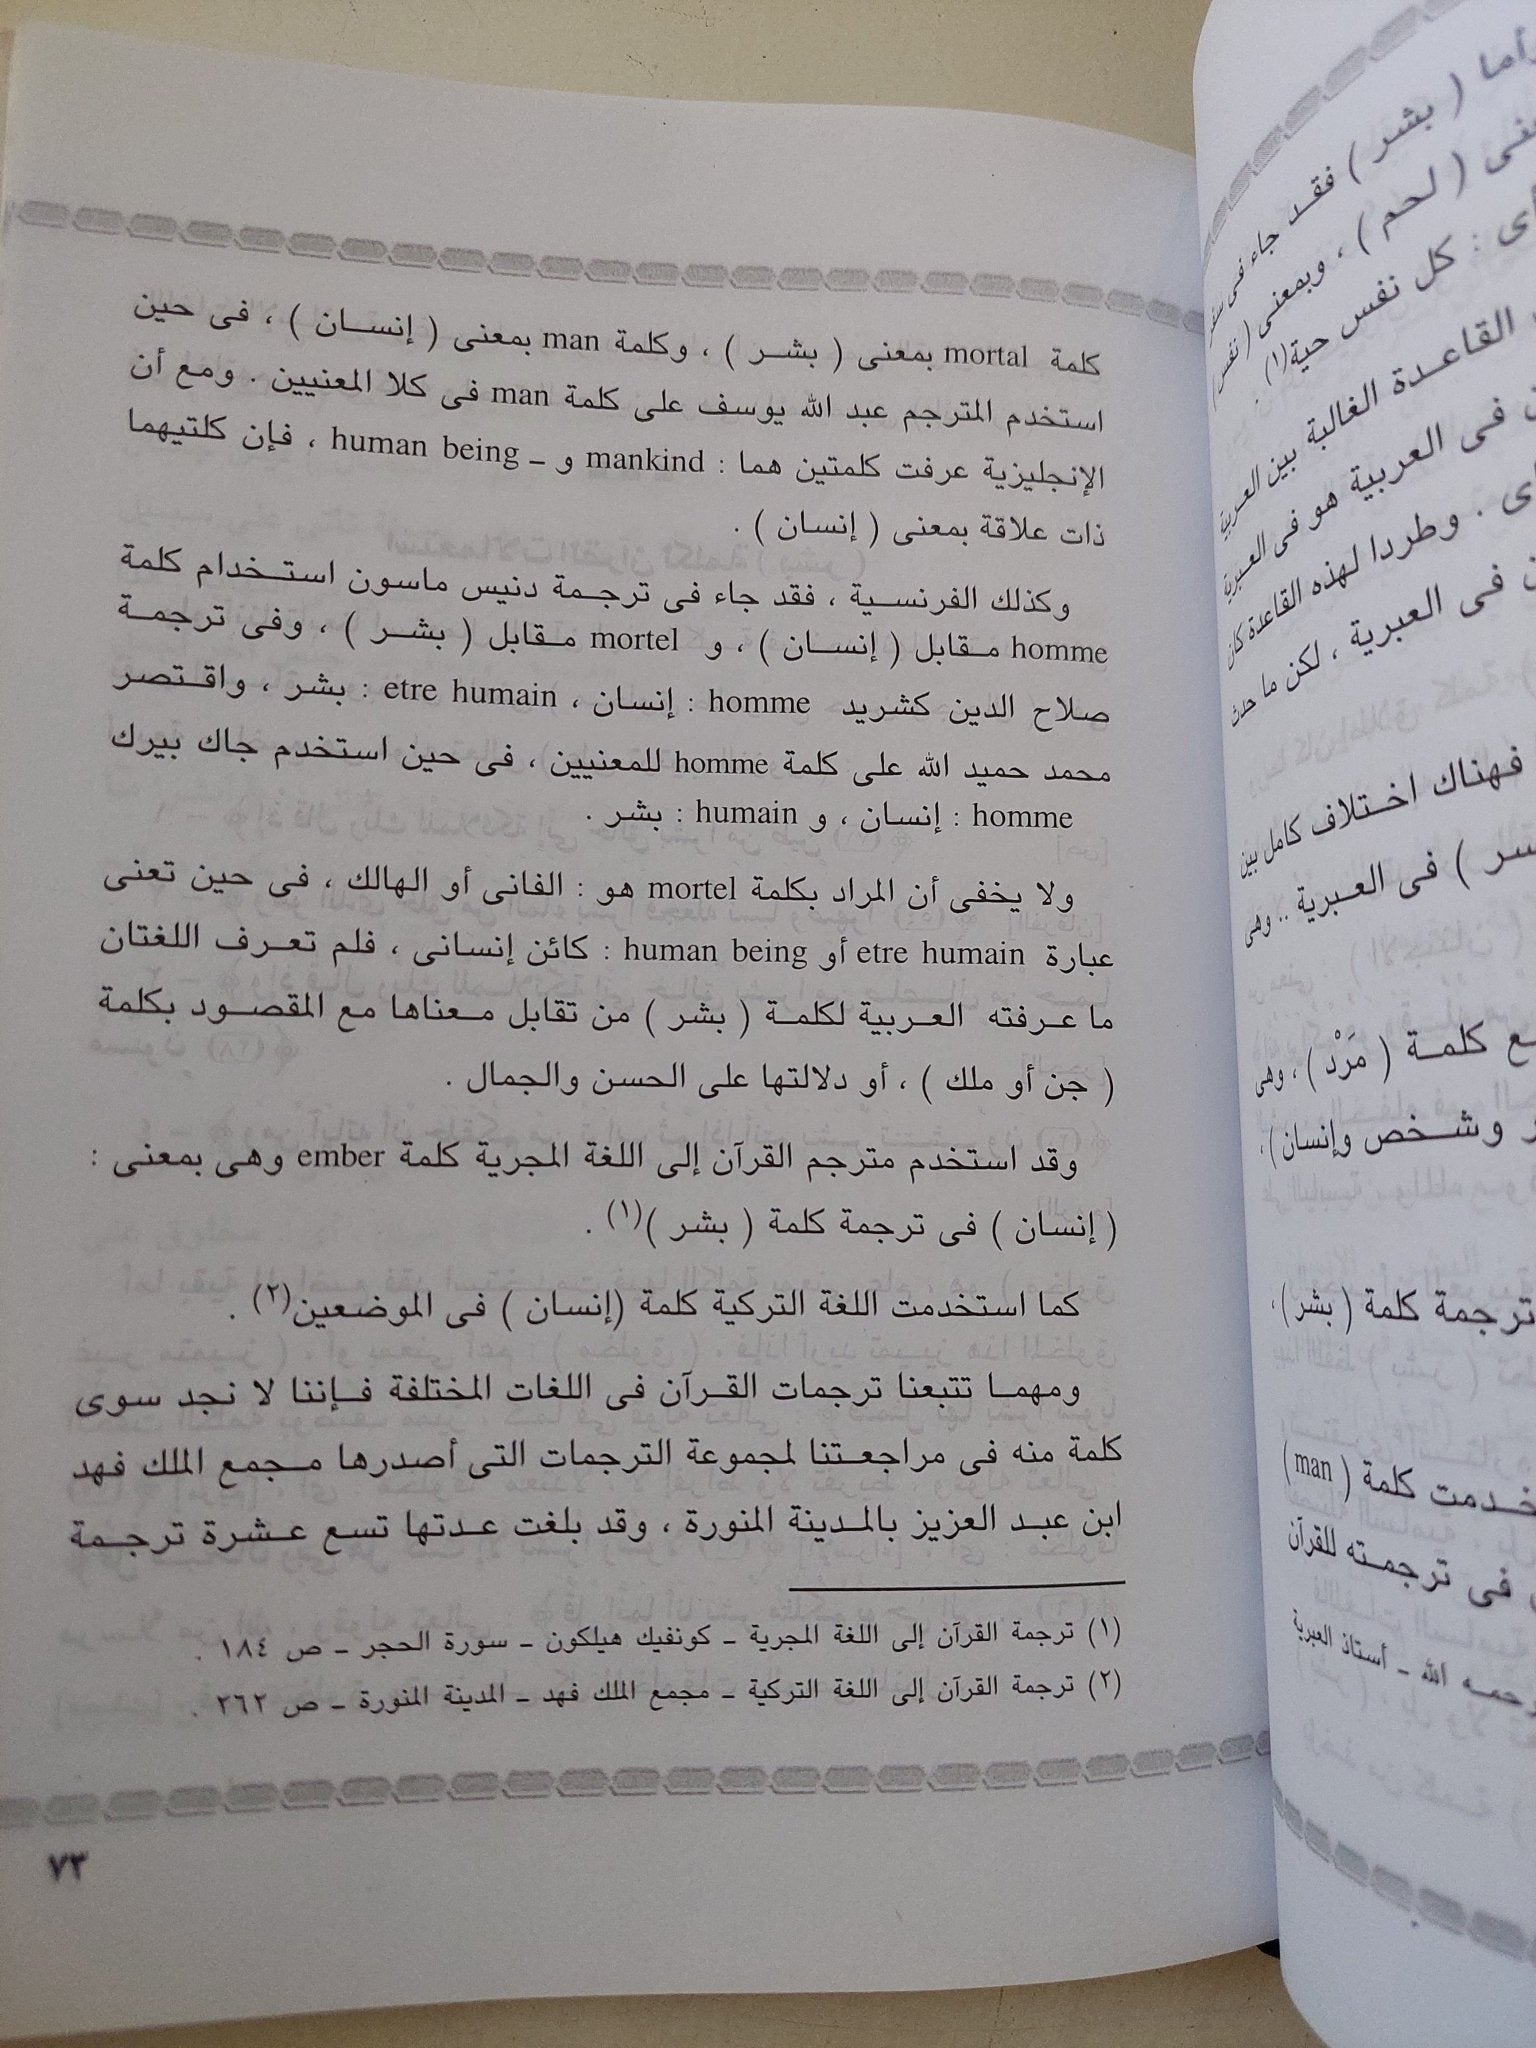 كلمة mortal بمعنى ( بشر ) ، وكلمة man بمعنى ( إنسان ) ، فى حين
استخدم المترجم عبد الله يوسف على كلمة man فى كلا المعنيين . ومع أن
الإنجليزية عرفت كلمتين هما : mankind و ـ human being ، فإن كلتيهما
ذات علاقة بمعنى ( إنسان ) .
وكذلك الفرنسية ، فقد جاء فى ترجمة دنيس ماسون استخدام كلمة
homme مقابل ( إنسان ) ، و mortel مقابل ( بشر ) ، وفى ترجمة
صلاح الدين كشريد homme : إنسان ، etre humain : بشر ، واقتصر
محمد حميد الله على كلمة homme للمعنيين ، فى حين استخدم جاك بيرك
homme : إنسان ، و humain : بشر .
ولا يخفى أن المراد بكلمة mortel هو : الفانى أو الهالك ، فى حين تعنى
عبارة etre humain أو human being : كائن إنسانى ، فلم تعرف اللغتان
ما عرفته العربية لكلمة ( بشر ) من تقابل معناها مع المقصود بكلمة
( جن أو ملك ) ، أو دلالتها على الحسن والجمال .
وقد استخدم مترجم القرآن إلى اللغة المجرية كلمة ember وهى بمعنى :
( إنسان ) فى ترجمة كلمة ( بشر )(١) .
كما استخدمت اللغة التركية كلمة (إنسان ) فى الموضعين(٢) .
ومهما تتبعنا ترجمات القرآن فى اللغات المختلفة فإننا لا نجد سوى
كلمة منه فى مراجعتنا لمجموعة الترجمات التى أصدرها مجمع الملك فهد
ابن عبد العزيز بالمدينة المنورة ، وقد بلغت عدتها تسع عشرة ترجمة
(١) ترجمة القرآن إلى اللغة المجرية ـ كونفيك هيلكون ـ سورة الحجر ـ ص ١٨٤ .
(٢) ترجمة القرآن إلى اللغة التركية ـ مجمع الملك فهد ـ المدينة المنورة ـ ص ٢٦٢ .
٧٣
( بشر ) فقد جاء فى
( لحم ) ، وبمعنى ( نفس )
: كل نفس حية(١) .
القاعدة الغالبة بين العربية
فى العربية هو فى العبرية
. وطردا لهذه القاعدة كان
فى العبرية ، لكن ما حدث
فهناك اختلاف كامل بين
) فى العبرية .. وهى
كلمة ( مَرْد ) ، وهى
وشخص وإنسان ) ،
ترجمة كلمة ( بشر ) ،
كلمة ( man )
فى ترجمته للقرآن
الله ـ أستاذ العبرية